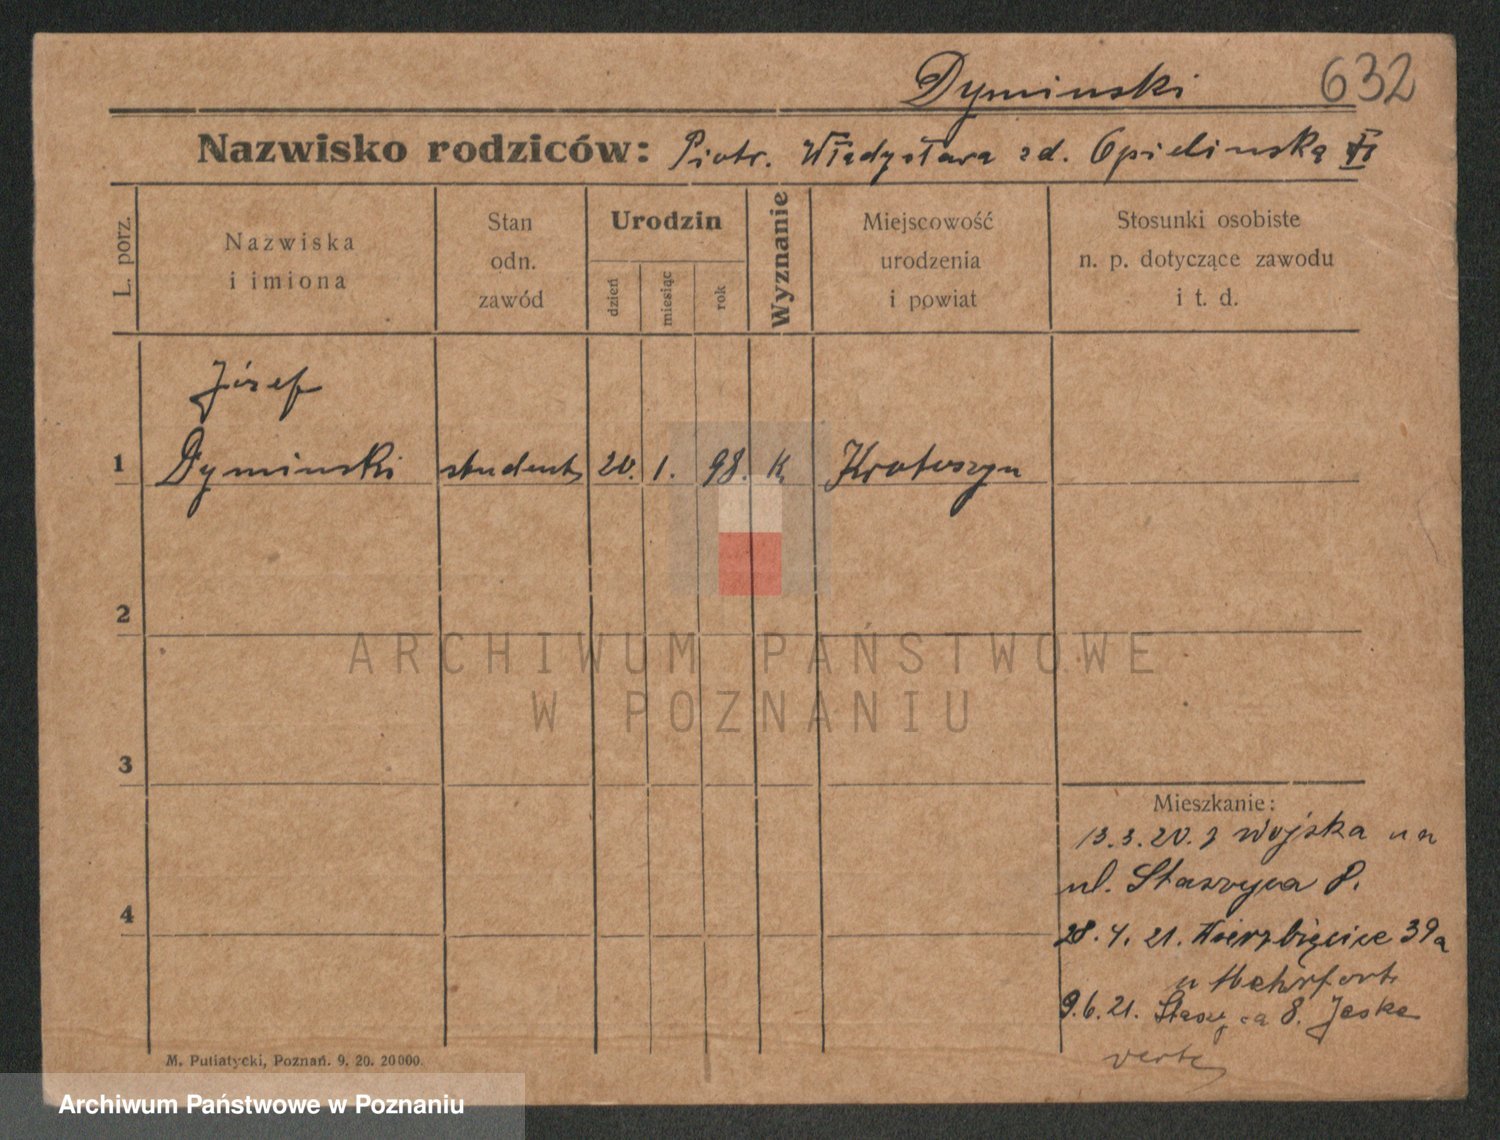 Dyminski 632
Nazwisko rodziców: Piotr. Władysława zd. Opielinska
L. porz.
Nazwiska
i imiona
Stan
odn.
zawód
Urodzin
dzień
miesiąc
rok
Wyznanie
Miejscowość
urodzenia
i powiat
Stosunki osobiste
n. p. dotyczące zawodu
i t. d.
Józef
1 Dyminski student 20. 1. 98. k Krotoszyn
2
ARCHIWUM PAŃSTWOWE
W POZNANIU
3
Mieszkanie:
13.3.20. z Wojska
ul. Staszyca 8.
4
28.4.21. Wierzbięcice 39a
u
9.6.21. 8. Jaska
verte
M. Putiatycki, Poznań. 9. 20. 20000.
Archiwum Państwowe w Poznaniu